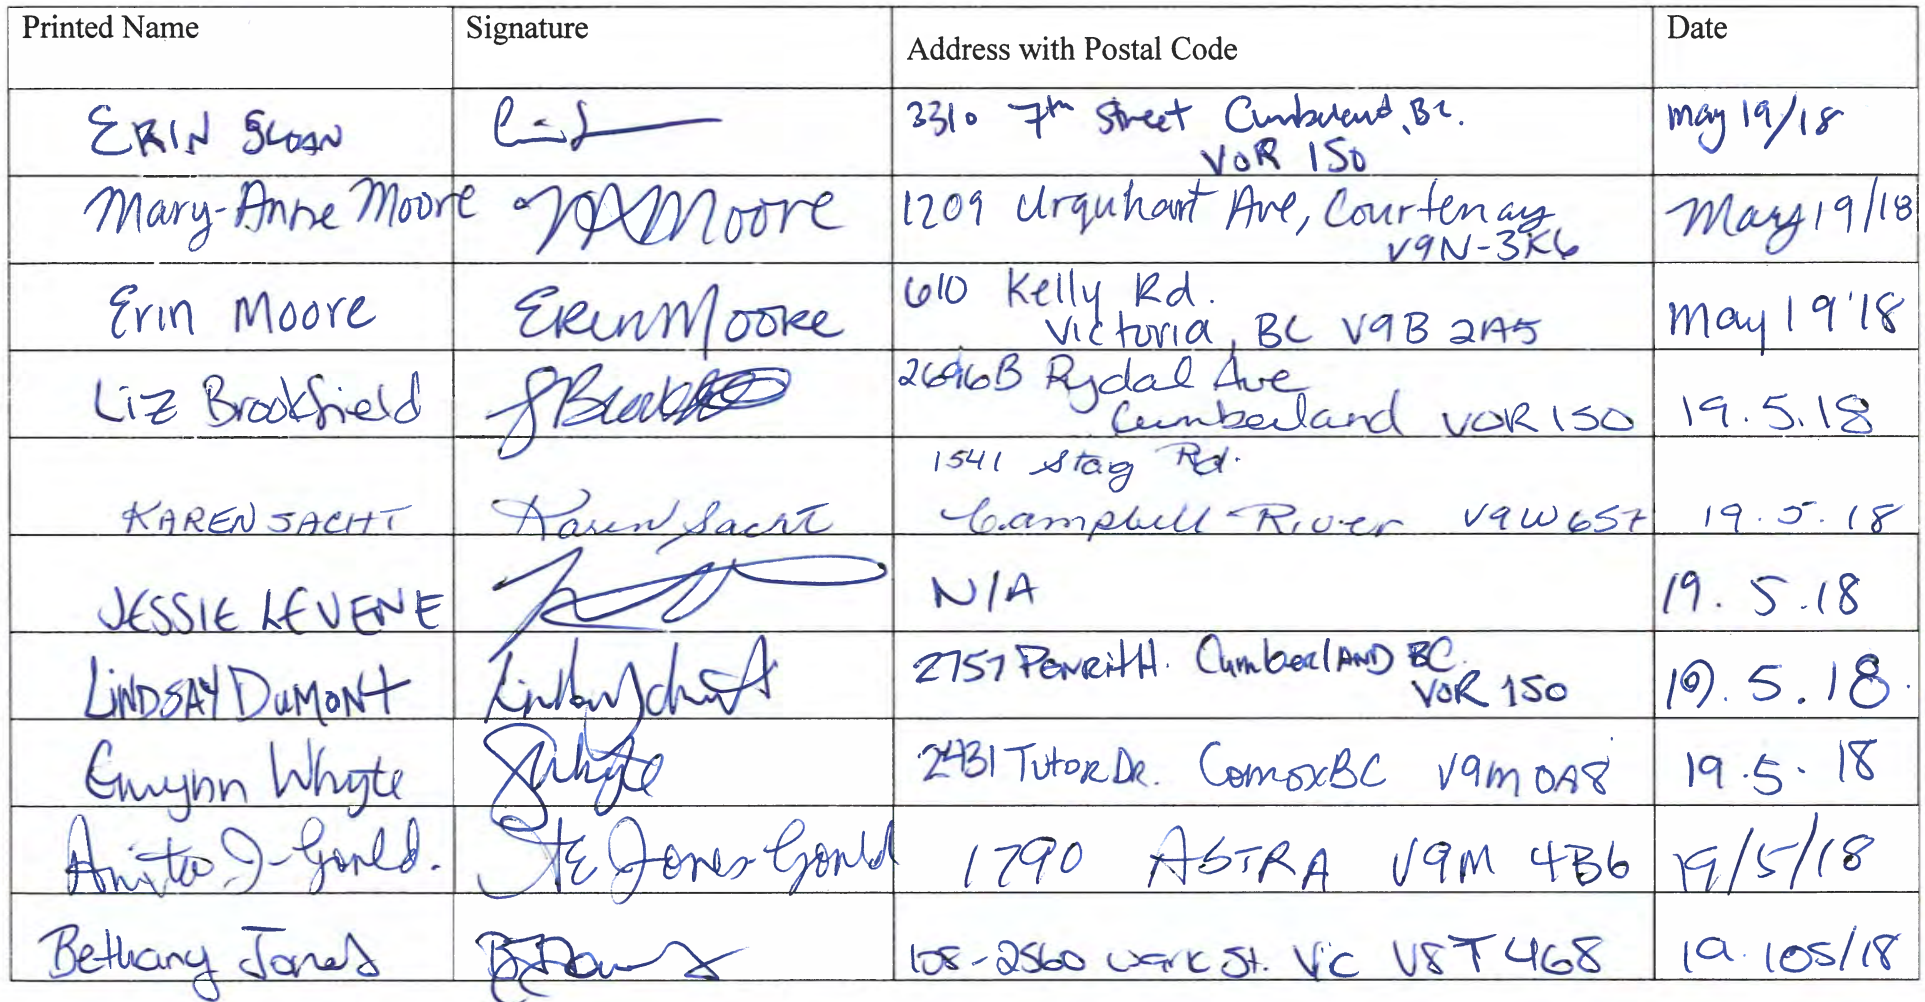 Printed Name Signature Address with Postal Code Date
ERIN SLOAN 3310 7th Street Cumberland, BC. May 19/18
V0R 1S0
Mary-Anne Moore MAMoore 1209 Urquhart Ave, Courtenay May 19/18
V9N-3K6
Erin Moore Erin Moore 610 Kelly Rd. May 19'18
Victoria, BC V9B 2A5
Liz Brookfield 2696B Rydal Ave 19.5.18
Cumberland V0R 1S0
1541 Stag Rd.
KAREN SACHT Karen Sacht Campbell River V9W 6S7 19.5.18
JESSIE LEVENE N/A 19.5.18
LINDSAY DUMONT 2757 PENRITH. CumberlAND BC. 19.5.18.
V0R 1S0
Gwynn Whyte GWhyte 2431 TUTOR DR. COMOX BC V9M 0A8 19.5.18
Anita J-Gould. Jones-Gould 1790 ASTRA V9M 4B6 19/5/18
Bethany Jones 108-2560 Wark St. Vic V8T 4G8 19/05/18